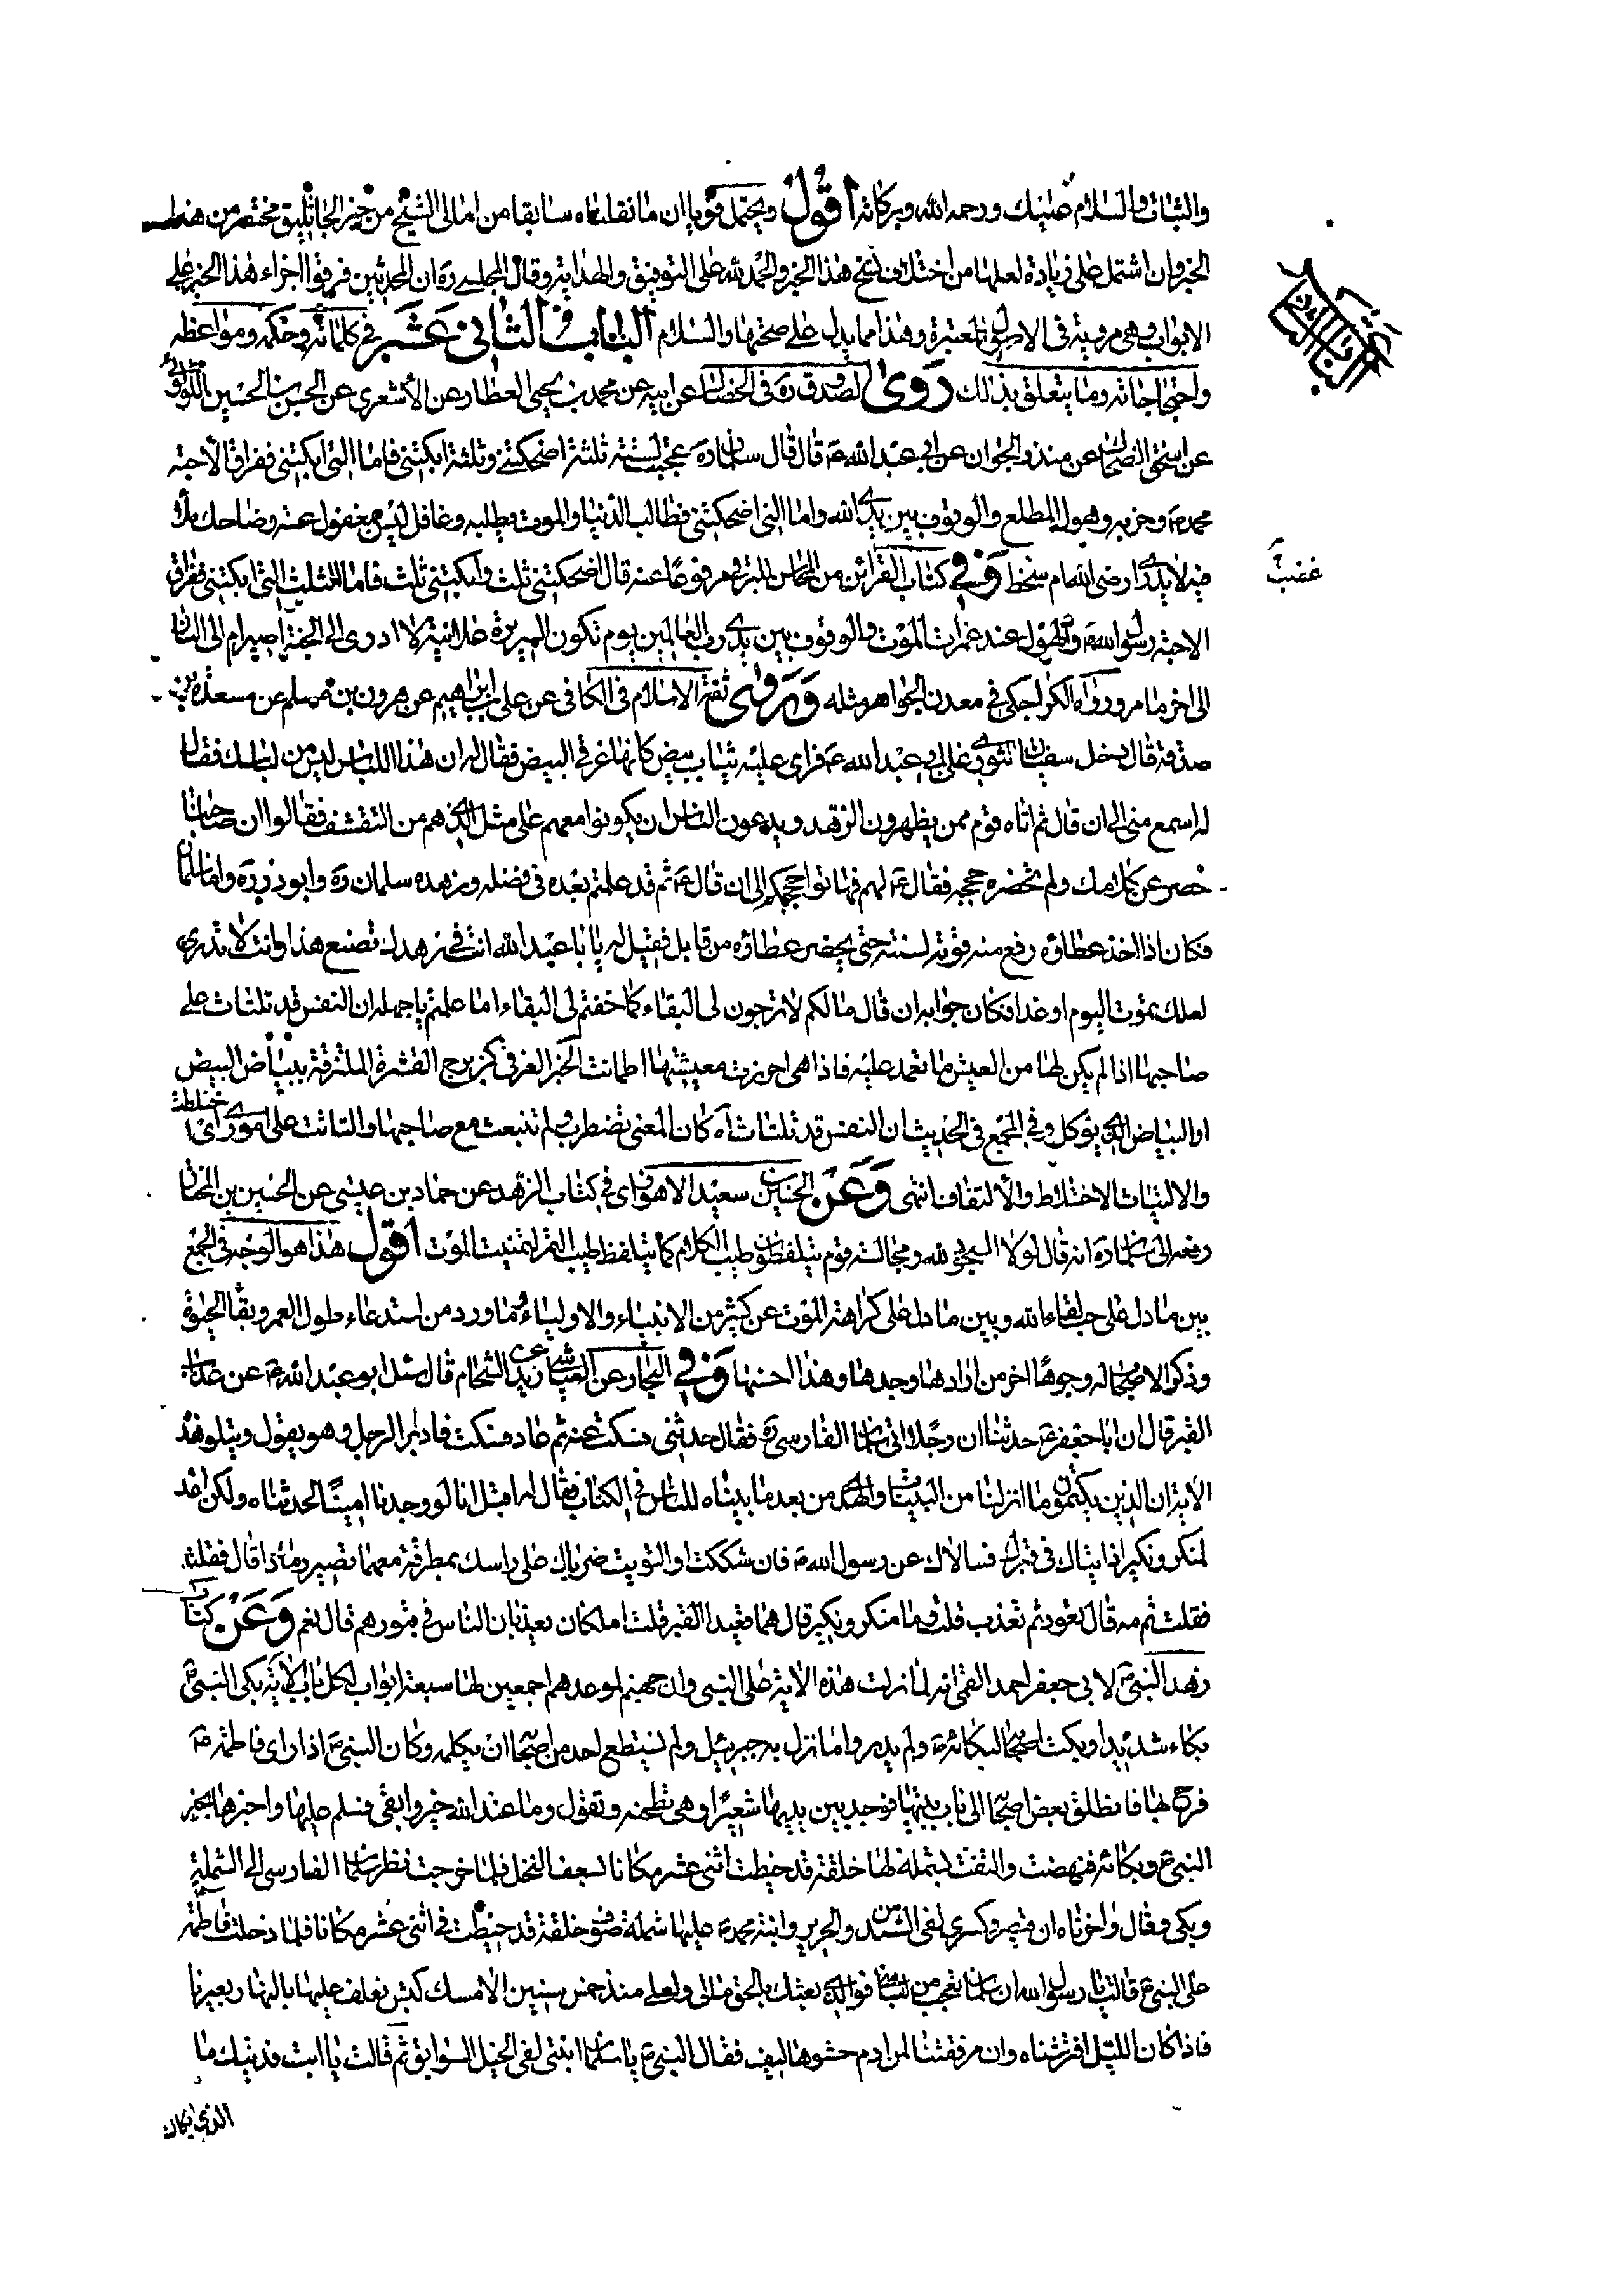 والثبات والسلام عليك ورحمة الله وبركاته اقول ويحتمل قويا ان ما نقلناه سابقا من امالى الشيخ من خبر الجاثليق مختصر من هذا
الخبر وان اشتمل على زيادة لعلها من اختلاف نسخ هذا الخبر والحمد لله على التوفيق والهداية وقال المجلسى ره ان المحدثين فرقوا اجزاء هذا الخبر على
الابواب وهى مروية فى الاصول المعتبرة وهذا مما يدل على صحتها والسلام الباب الثانى عشر فى كلماته وحكمه ومواعظه
واحتجاجاته وما يتعلق بذلك روى الصدوق ره فى الخصال عن ابيه عن محمد بن يحيى العطار عن الأشعري عن الحسن بن الحسين اللؤلؤئ
عن اسحق الضحاك عن منذر الجوان عن ابى عبد الله ع قال قال سلمان ره عجبت لستة ثلثة اضحكتنى وثلثة ابكتنى فاما التى ابكتنى ففراق الأحبة
محمد ص وحزبه وهول المطلع والوقوف بين يدى الله واما التى اضحكتنى فطالب الدنيا والموت يطلبه وغافل ليس بمغفول عنه وضاحك ملأ
فيه لا يدرى ارضى الله ام سخط وفى كتاب القرائن من المحاسن للبرقى مرفوعا عنه قال اضحكتنى ثلث وابكتنى ثلث فاما الثلث التى ابكتنى ففراق
غضب
الاحبة رسول الله ص والهول عند غمرات الموت والوقوف بين يدى رب العالمين يوم تكون السريرة علانية لا ادرى الى الجنة اصير ام الى النار
الى اخر ما مر ورواه الكراجكى فى معدن الجواهر مثله وروى ثقة الاسلام فى الكافى عن على بن ابراهيم عن هرون بن مسلم عن مسعدة بن
صدقة قال دخل سفيان الثورى على ابى عبد الله ع فراى عليه ثياب بيض كانها غرقئ البيض فقال له ان هذا اللباس ليس من لباسك فقال
له اسمع منى الى ان قال ثم اتاه قوم ممن يظهرون الزهد ويدعون الناس ان يكونوا معهم على مثل الذى هم من التقشف فقالوا ان صاحبنا
حصر عن كلامك ولم تحضره حججه فقال ع لهم فهاتوا حججكم الى ان قال ع ثم قد علمتم بعده فى فضله وزهده سلمان ره وابو ذر ره واما سلمان
فكان اذا اخذ عطاؤه رفع منه قوته لسنته حتى يحضر عطاؤه من قابل فقيل له يا با عبد الله انت فى زهدك تصنع هذا وانت لا تدرى
لعلك تموت اليوم او غدا فكان جوابه ان قال ما لكم لا ترجون لى البقاء كما خفتم لى البقاء اما علمتم يا جهلة ان النفس قد تلتاث على
صاحبها اذا لم يكن لها من العيش ما تعتمد عليه فاذا هى احرزت معيشتها اطمانت الخبر الغرقئ كزبرج القشرة الملتزقة ببياض البيض
او البياض الذى يؤكل وفى المجمع فى الحديث ان النفس قد تلتاث اه كان المعنى تضطرب ولم تنبعث مع صاحبها والتاثت على امورى اى اختلطت
والالتياث الاختلاط والالتفاف انتهى وعن الحسين بن سعيد الاهوازى فى كتاب الزهد عن حماد بن عيسى عن الحسين بن المختار
رفعه الى سلمان ره انه قال لولا السجود لله ومجالسة قوم يتلفظون طيب الكلام كما يتلفظ طيب التمر لتمنيت الموت اقول هذا هو الوجه فى الجمع
بين ما دل على حب لقاء الله وبين ما دل على كراهة الموت عن كثير من الانبياء والاولياء وما ورد من استدعاء طول العمر وبقاء الحيوة
وذكر الاصحاب له وجوها اخر من ارادها وجدها وهذا احسنها وفى البحار عن العياشى عن زيد الشحام قال سئل ابو عبد الله ع عن عذاب
القبر قال ان ابا جعفر ع حدثنا ان رجلا اتى سلمان الفارسى ره فقال حدثنى فسكت عنه ثم عاد فسكت فادبر الرجل وهو يقول ويتلو هذه
الاية ان الذين يكتمون ما انزلنا من البينات والهدى من بعد ما بيناه للناس فى الكتاب فقال له اقبل انا لو وجدنا امينا لحدثناه ولكن اعد
لمنكر ونكير اذا اتياك فى قبرك فسالاك عن رسول الله ص فان شككت او التويت ضرباك على راسك بمطرقة معهما تصير رمادا قال فقلت
فقلت ثم مه قال تعود ثم تعذب قلت وما منكر ونكير قال هما قعيدا القبر قلت املكان يعذبان الناس فى قبورهم قال نعم وعن كتاب
زهد النبى ص لابى جعفر احمد القمى انه لما نزلت هذه الاية على النبى وان جهنم لموعدهم اجمعين لها سبعة ابواب لكل باب الاية بكى النبى ص
بكاء شديدا وبكت اصحابه لبكائه ص ولم يدروا ما نزل به جبرئيل ولم يستطع احد من اصحابه ان يكلمه وكان النبى ص اذا راى فاطمة ع
فرح بها فانطلق بعض اصحابه الى باب بيتها فوجد بين يديها شعيرا وهى تطحنه وتقول وما عند الله خير وابقى فسلم عليها واخبرها بخبر
النبى ص وبكائه فنهضت والتفت بشملة لها خلقة قد خيطت اثنى عشر مكانا بسعف النخل فلما خرجت نظر سلمان الفارسى الى الشملة
وبكى وقال واحزناه ان قيصر وكسرى لفى السندس والحرير وابنة محمد ص عليها شملة صوف خلقة قد خيطت فى اثنى عشر مكانا فلما دخلت فاطمة
على النبى ص قالت يا رسول الله ان سلمان تعجب من لباسى فوالذى بعثك بالحق مالى ولعلى منذ خمس سنين الا مسك كبش نعلف عليها بالنهار بعيرنا
فاذا كان الليل افترشناه وان مرفقتنا لمن ادم حشوها ليف فقال النبى ص يا سلمان ابنتى لفى الخيل السوابق ثم قالت يا ابت فديتك ما
الذى ابكاك